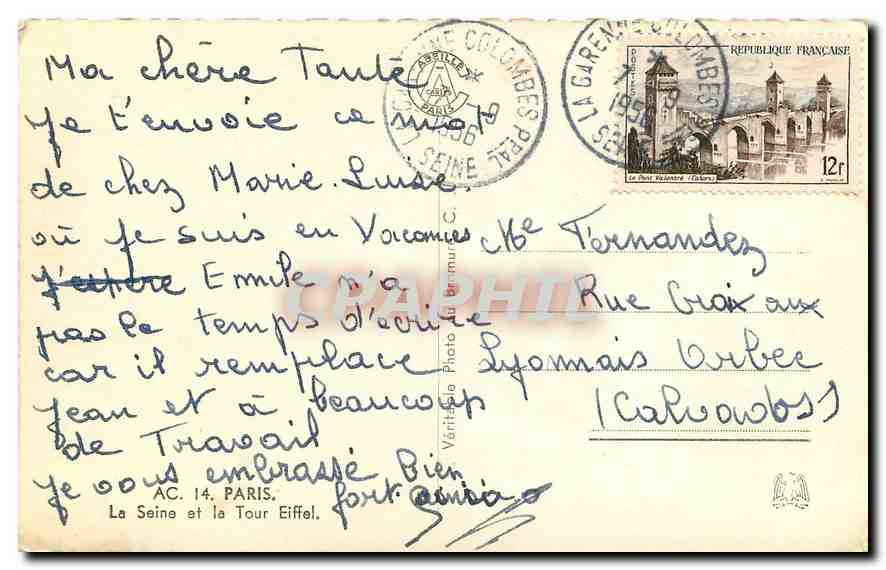 Ma chère Tante
je t'envoie ce mot
de chez Marie-Luise.
où je suis en Vacances
Emile n'a
pas le temps d'ecrire
car il remplace
Jean et à beaucoup
de Travail
je vous embrasse bien
fort.
AC. 14. PARIS.
La Seine et la Tour Eiffel.
Véritable Photo au Bromure
CPAPHIL
ABEILLE
CARLES
PARIS
LA GARENNE COLOMBES PPAL
7-9
1956
SEINE
LA GARENNE COLOMBES PPAL
7-9
1956
SEINE
POSTES
REPUBLIQUE FRANÇAISE
Le Pont Valentré (Cahors)
12f
Me Fernandez
Rue Croix aux
Lyonnais Orbec
(Calvados)